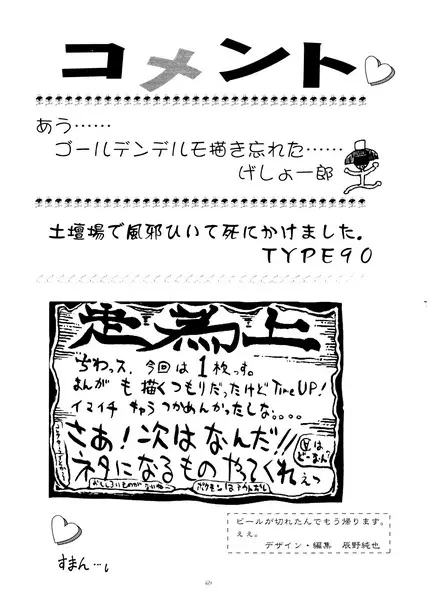 コメント
あう……
ゴールデンデルモ描き忘れた……
げしょ一郎
土壇場で風邪ひいて死にかけました。
TYPE90
走為上
ちわっス、今回は1枚っす。
まんがも描くつもりだったけどTimeUP!
イマイチ
つかめんかったしな。。。
さあ!次はなんだ!!
ネタになるものやってくれぇっ
ビールが切れたんでもう帰ります。
ええ。
デザイン・編集 辰野純也
すまん…